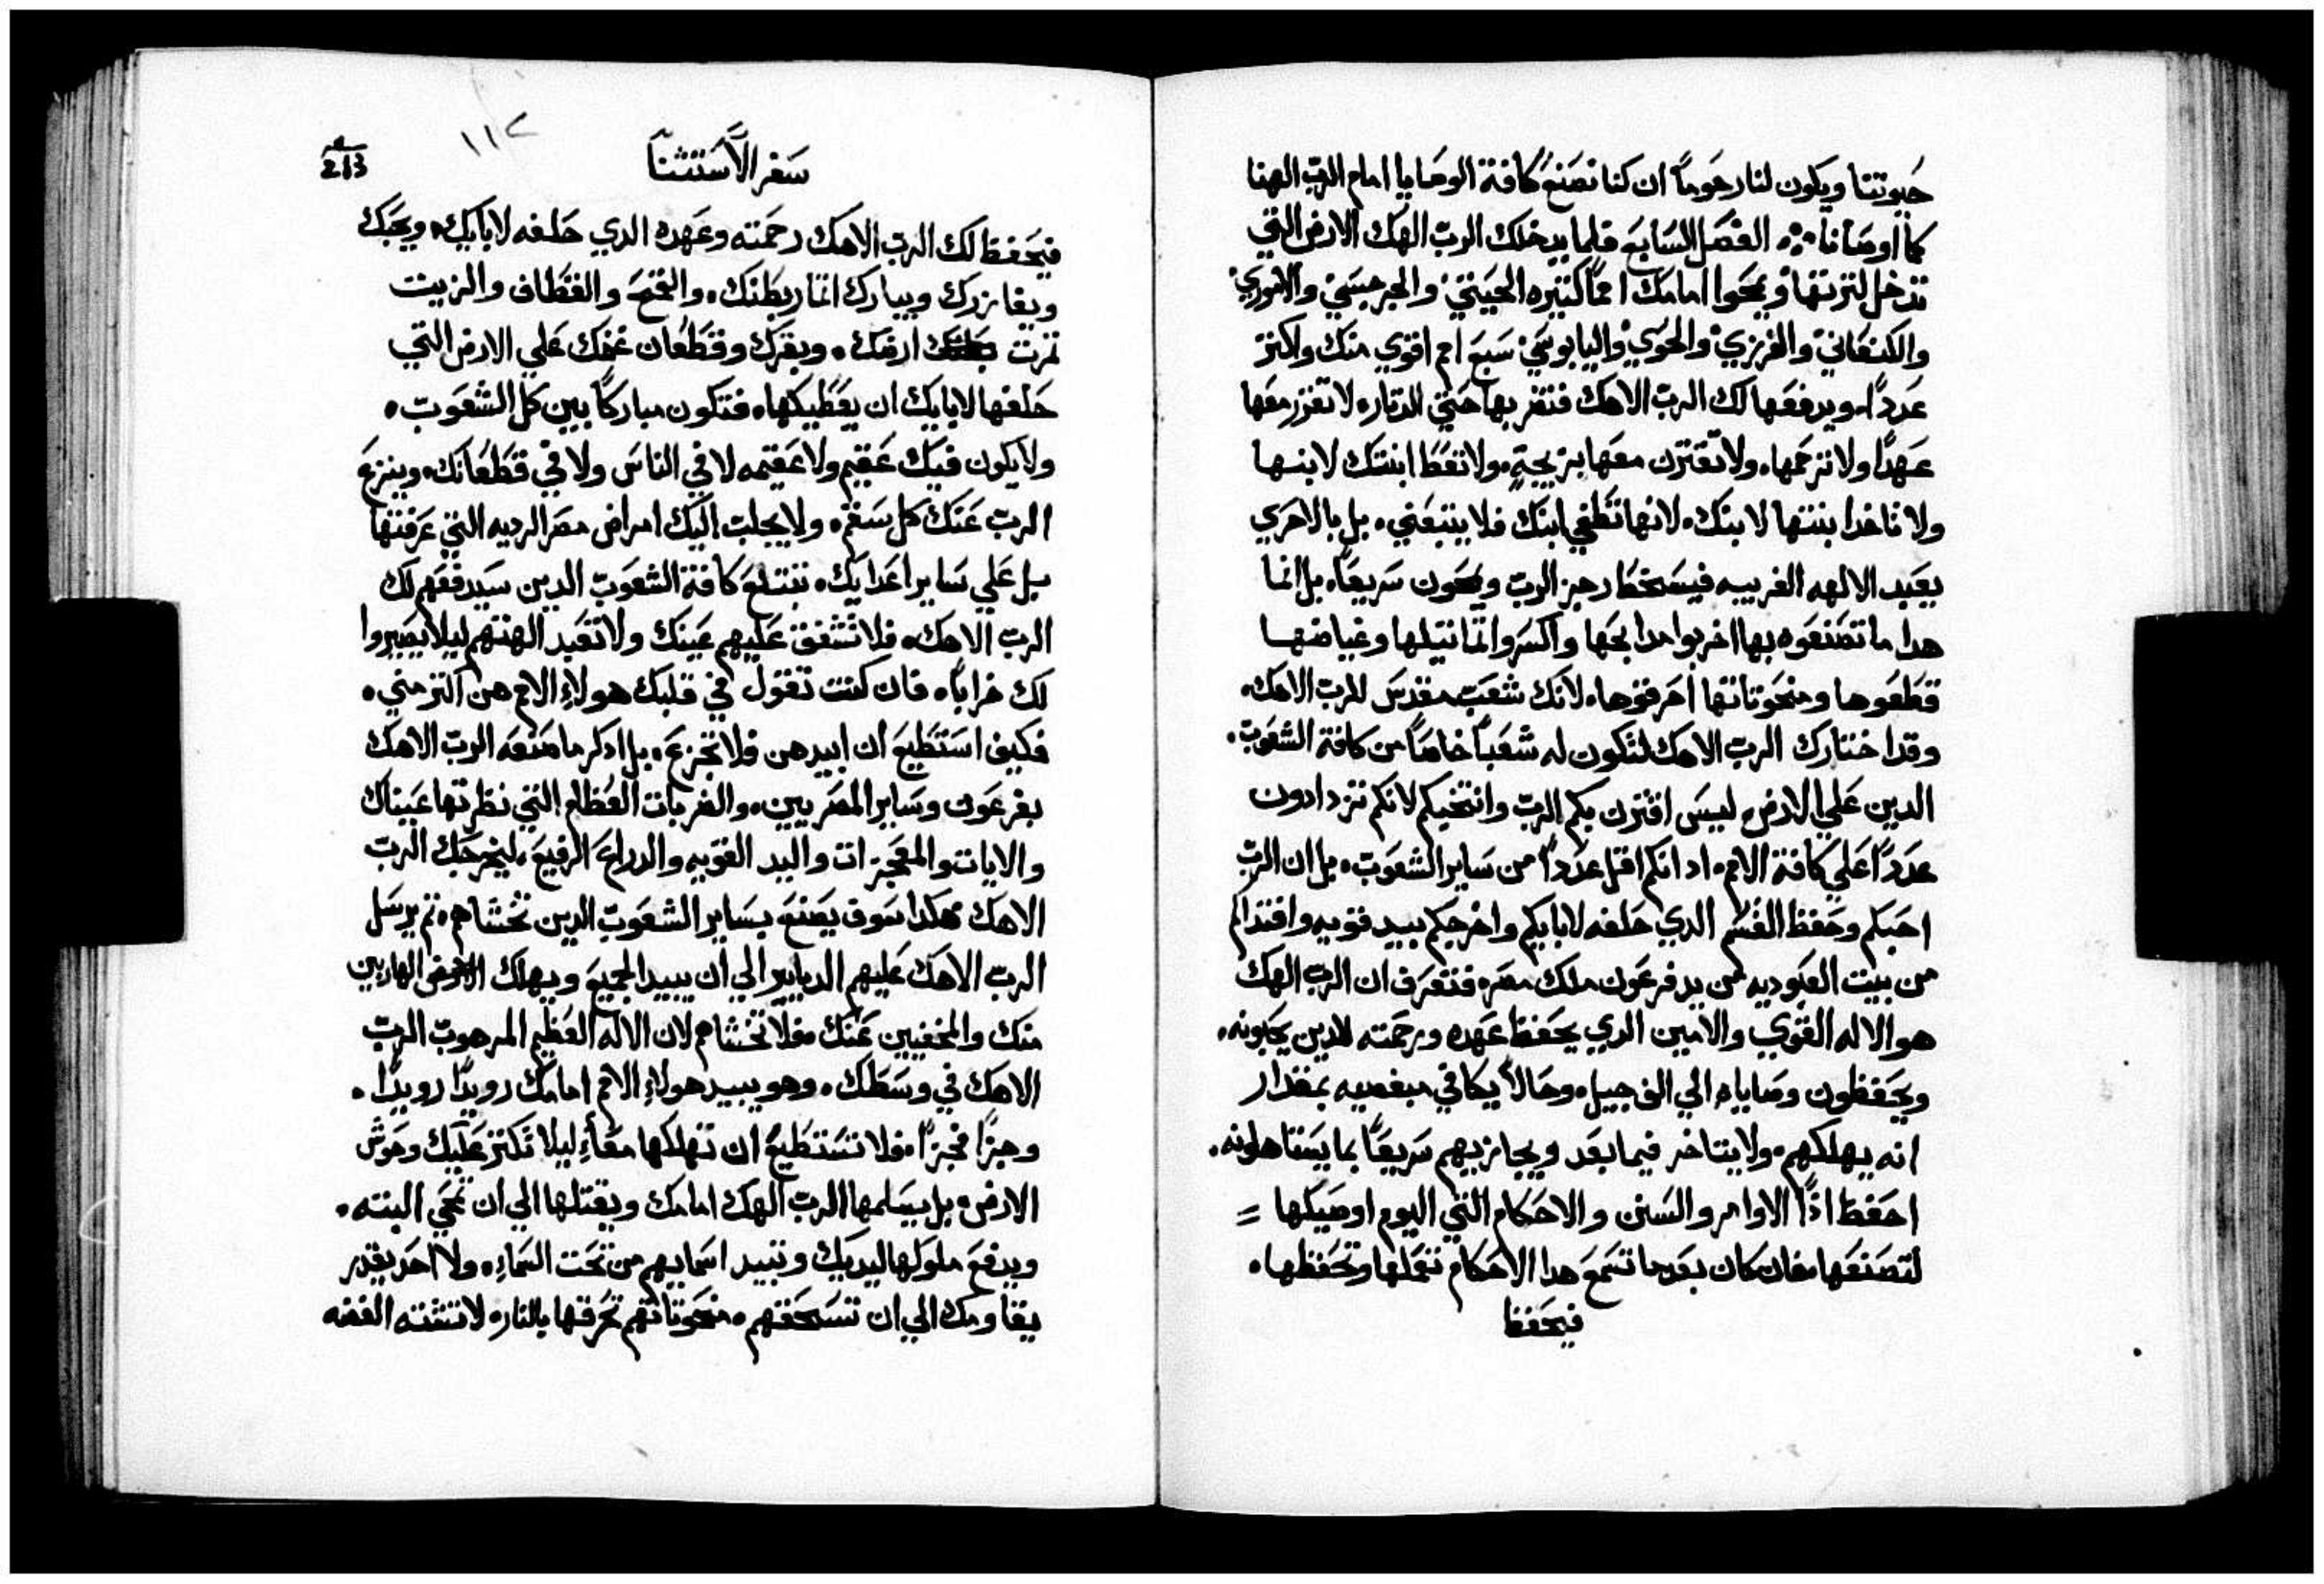 حيوتنا ويكون لنا رحوماً ان كنا نصنع كافة الوصايا امام الرب الهنا
كما اوصانا الفصل السابع فلما يدخلك الرب الهك الارض التي
تدخل لترتها ويمحوا امامك امماً كثيره الحيتي والجرجسي والاموري
والكنعاني والفرزي والحوي واليابوسي سبع امم اقوي منك واكثر
عدداً ويدفعها لك الرب الاهك فتضربها حتي الدثاره لا تغرز معها
عهداً ولا ترحمها ولا تقترن معها بزيجةٍ ولا تعط ابنتك لابنها
ولا تاخد ابنتها لابنك لانها تطغي ابنك فلا يتبعني بل بالاحري
يعبد الالهه الغريبه فيسخط رجز الرب ويمحون سريعاً بل انما
هدا ما تصنعوه بها اخربوا مدابحها واكسروا تماثيلها وغياضها
قطعوها ومنحوتاتها احرقوها لانك شعب مقدس للرب الاهك
وقد اختارك الرب الاهك لتكون له شعباً خاصاً من كافة الشعوب
الدين علي الارض ليس اقترن بكم الرب وانتخبكم لانكم تزدادون
عدداً علي كافة الامم اد انكم اقل عدداً من ساير الشعوب بل ان الرب
احبكم وحفظ القسم الدي حلفه لابايكم واخرجكم بيد قويه وافتداكم
من بيت العبوديه من يد فرعون ملك مصر فتعرف ان الرب الهك
هو الاله القوي والامين الدي يحفظ عهده ورحمته للدين يحبونه
ويحفظون وصاياه الي الف جيل وحالاً يكافي مبغضيه بمقدار
انه يهلكهم ولا يتاخر فيما بعد ويجازيهم سريعاً بما يستاهلونه
احفظ اذاً الاوامر والسنن والاحكام التي اليوم اوصيكها =
لتصنعها فان كان بعد ما تسمع هدا الاحكام تعملها وتحفظها
فيحفظ
سفر الاستثنا
١١٢
213
فيحفظ لك الرب الاهك رحمته وعهده الدي حلفه لابايك ويحبك
ويغازرك ويبارك اثمار بطنك والقمح والقطاف والزيت
ثمرت ارضك وبقرك وقطعان غنمك علي الارض التي
حلفها لابايك ان يعطيكها فتكون مباركاً بين كل الشعوب
ولا يكون فيك عقيم ولا عقيمه لا في الناس ولا في قطعانك وينزع
الرب عنك كل سقم ولا يجلب اليك امراض مصر الرديه التي عرفتها
بل علي ساير اعدايك تبتلع كافة الشعوب الدين سيدفعهم لك
الرب الاهك فلا تشفق عليهم عينك ولا تعبد الهتهم ليلا يصيروا
لك خراباً فان كنت تقول في قلبك هولاءِ الامم هن اكثر مني
فكيف استطيع ان ابيدهن فلا تجزع بل ادكر ما صنعه الرب الاهك
بفرعون وساير المصريين والضربات العظام التي نظرتها عيناك
والايات والمعجزات واليد القويه والدراع الرفيع ليخرجك الرب
الاهك هكدا سوف يصنع بساير الشعوب الدين تخشاهم ثم يرسل
الرب الاهك عليهم الدبابير الي ان يبيد الجميع ويهلك الهاربين
منك والمخفيين عنك فلا تخشاهم لان الاله العظيم المرهوب الرب
الاهك في وسطك وهو يبيد هولاءِ الامم امامك رويداً رويداً
وجزاً فجزاً فلا تستطيع ان تهلكها معاً ليلا تكثر عليك وحوش
الارض بل يسلمها الرب الهك امامك ويقتلها الي ان تمحي البته
ويدفع ملوكها ليديك وتبيد اسمايهم من تحت السماءِ ولا احد يقدر
يقاومك الي ان تسحقهم منحوتاتهم تحرقها بالنار لا تشته الفضه